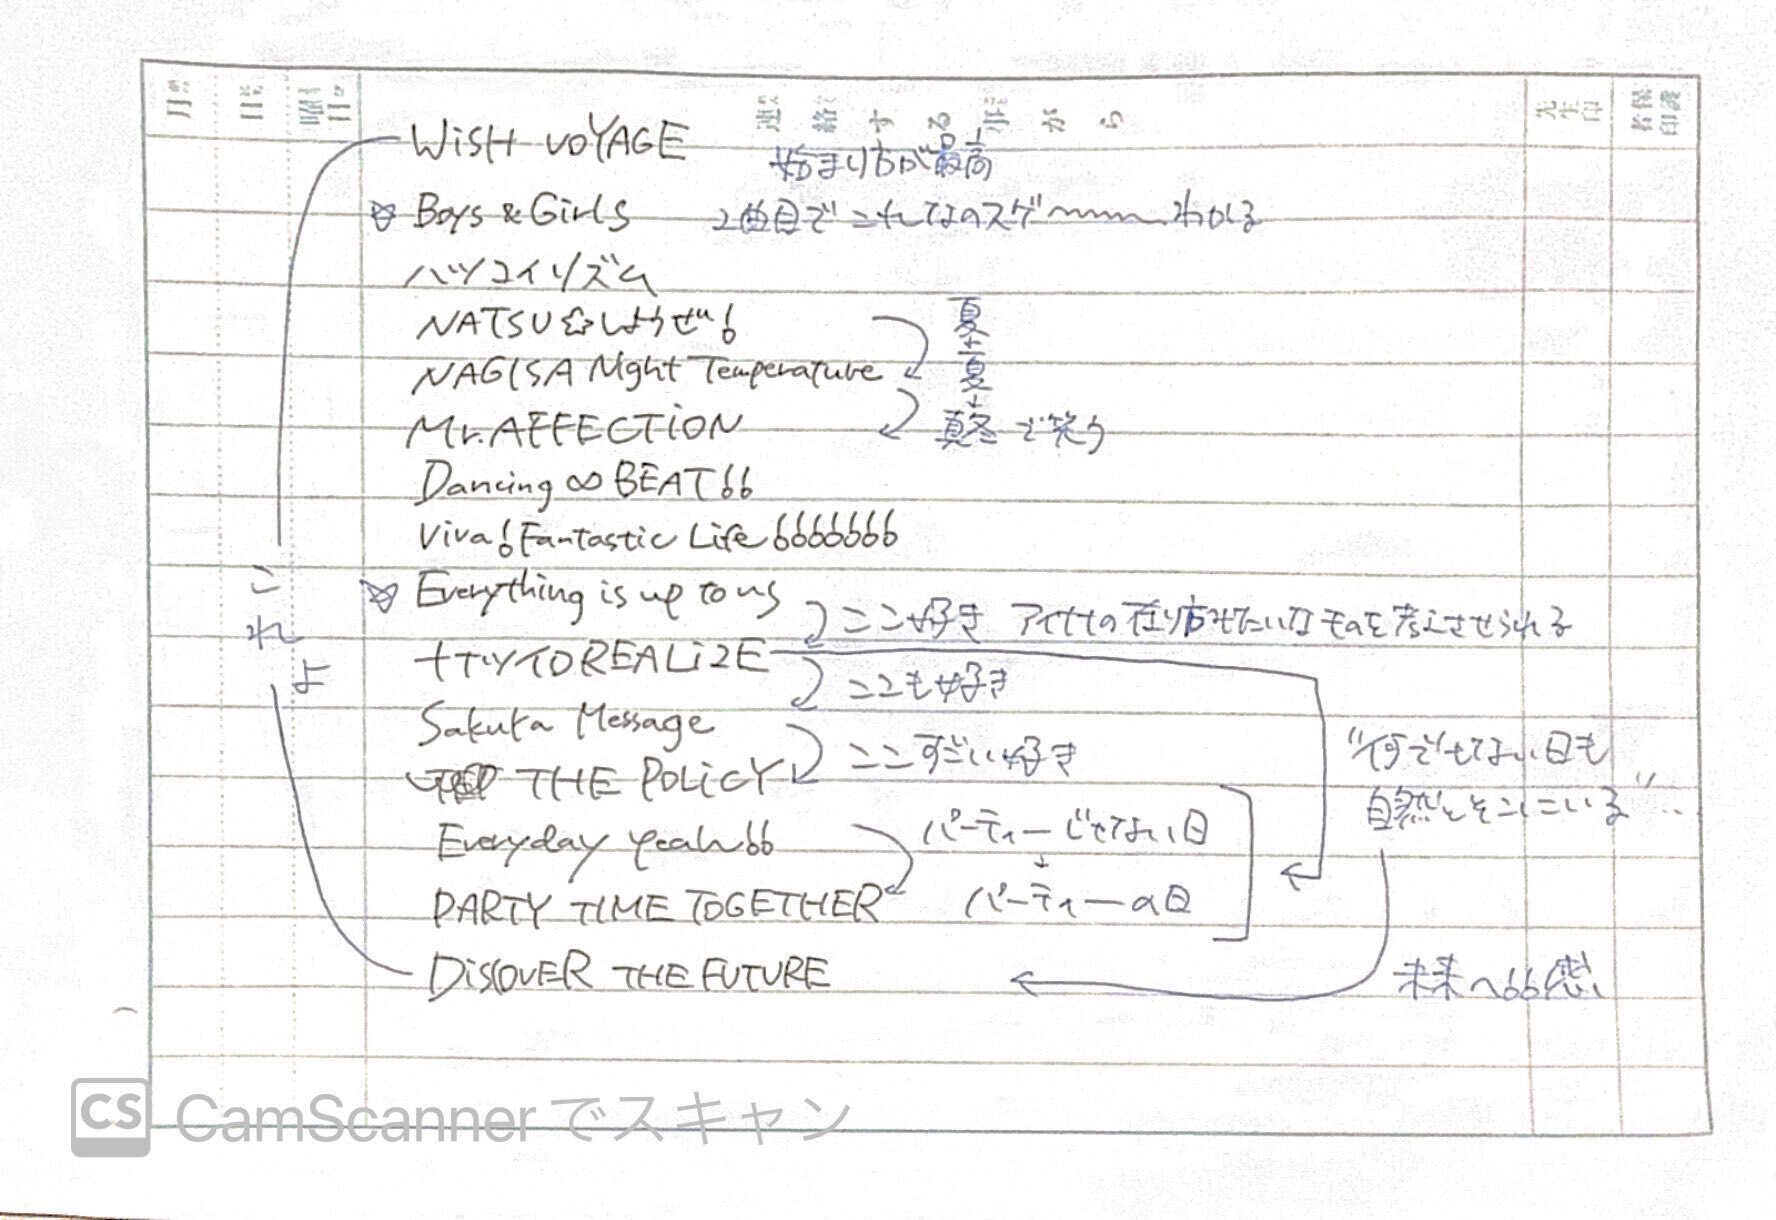 月 日 曜日 連絡する事がら 先生印 保護者印
WiSH VOYAGE
始まり方が最高
☆ Boys & Girls 2曲目でこれなのスゲ〰わかる
ハツコイリズム
NATSU☆しようぜ!
夏
↓
NAGISA Night Temperature
夏
↓
Mr.AFFECTiON
真冬 で笑う
Dancing ∞ BEAT!!
Viva! Fantastic Life!!!!!!!
☆ Everything is up to us
ここ好き アイナナの在り方みたいなものを考えさせられる
ナナツイロ REALiZE
ここも好き
Sakura Message
ここすごい好き
THE POLiCY
"何でもない日も
自然とそこにいる"…
Everyday Yeah!!
パーティーじゃない日
↓
PARTY TIME TOGETHER
パーティーの日
DiSCOVER THE FUTURE
未来へ!!感
これよ
CS CamScannerでスキャン